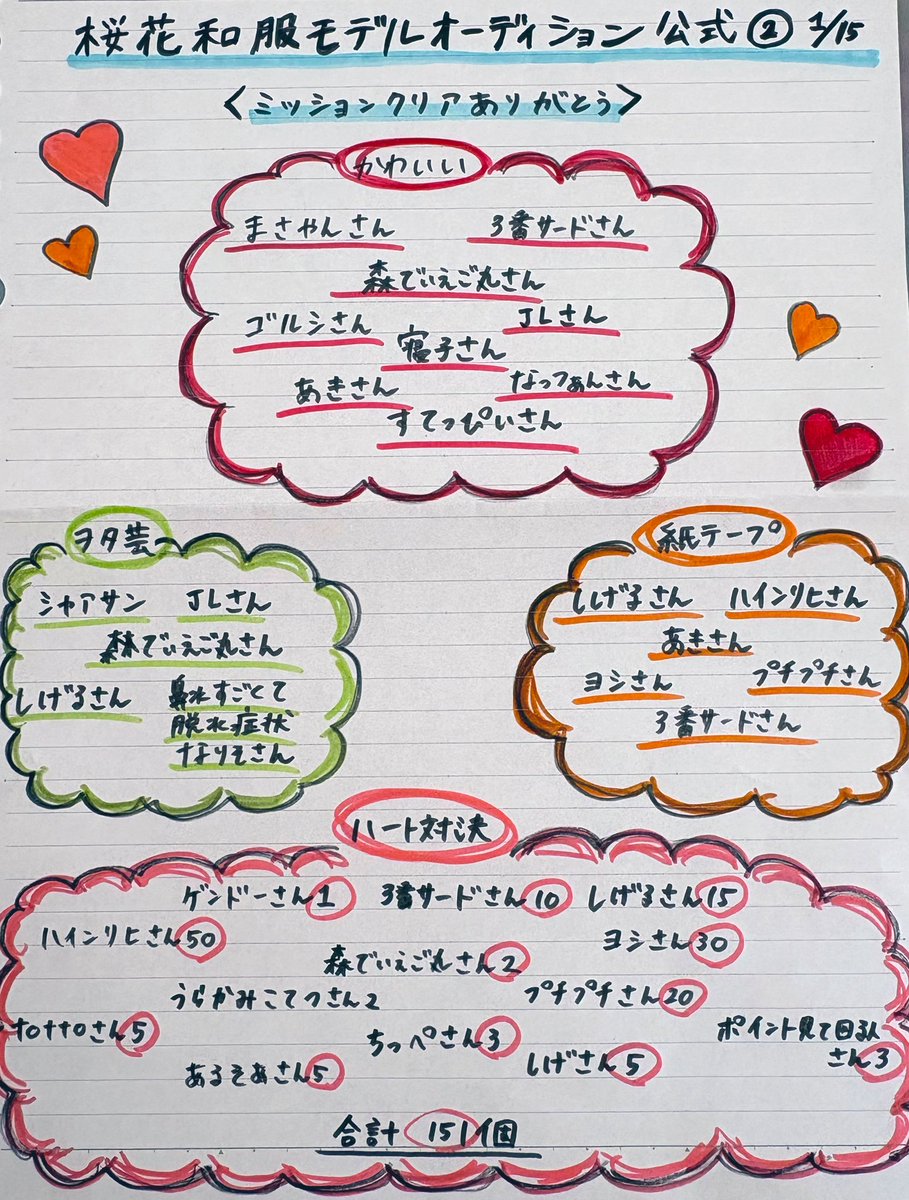 桜花和服モデルオーディション公式② 1/15
〈ミッションクリアありがとう〉
かわいい
まさやんさん 3番サードさん
森でいえご丸さん
ゴルシさん JLさん
寝子さん
あきさん なっつぁんさん
すてっぴぃさん
ヲタ芸
シャアサン JLさん
森でいえご丸さん
しげるさん 鼻水すごくて
脱水症状
なりそさん
紙テープ
しげるさん ハインリヒさん
あきさん
ヨシさん プチプチさん
3番サードさん
ハート対決
ゲンドーさん1 3番サードさん10 しげるさん15
ハインリヒさん50 ヨシさん30
森でいえご丸さん2
うらかみこてつさん2 プチプチさん20
tottoさん5 ちっぺさん3 ポイント見て回る人
さん3
あるそあさん5 しげさん5
合計 151個